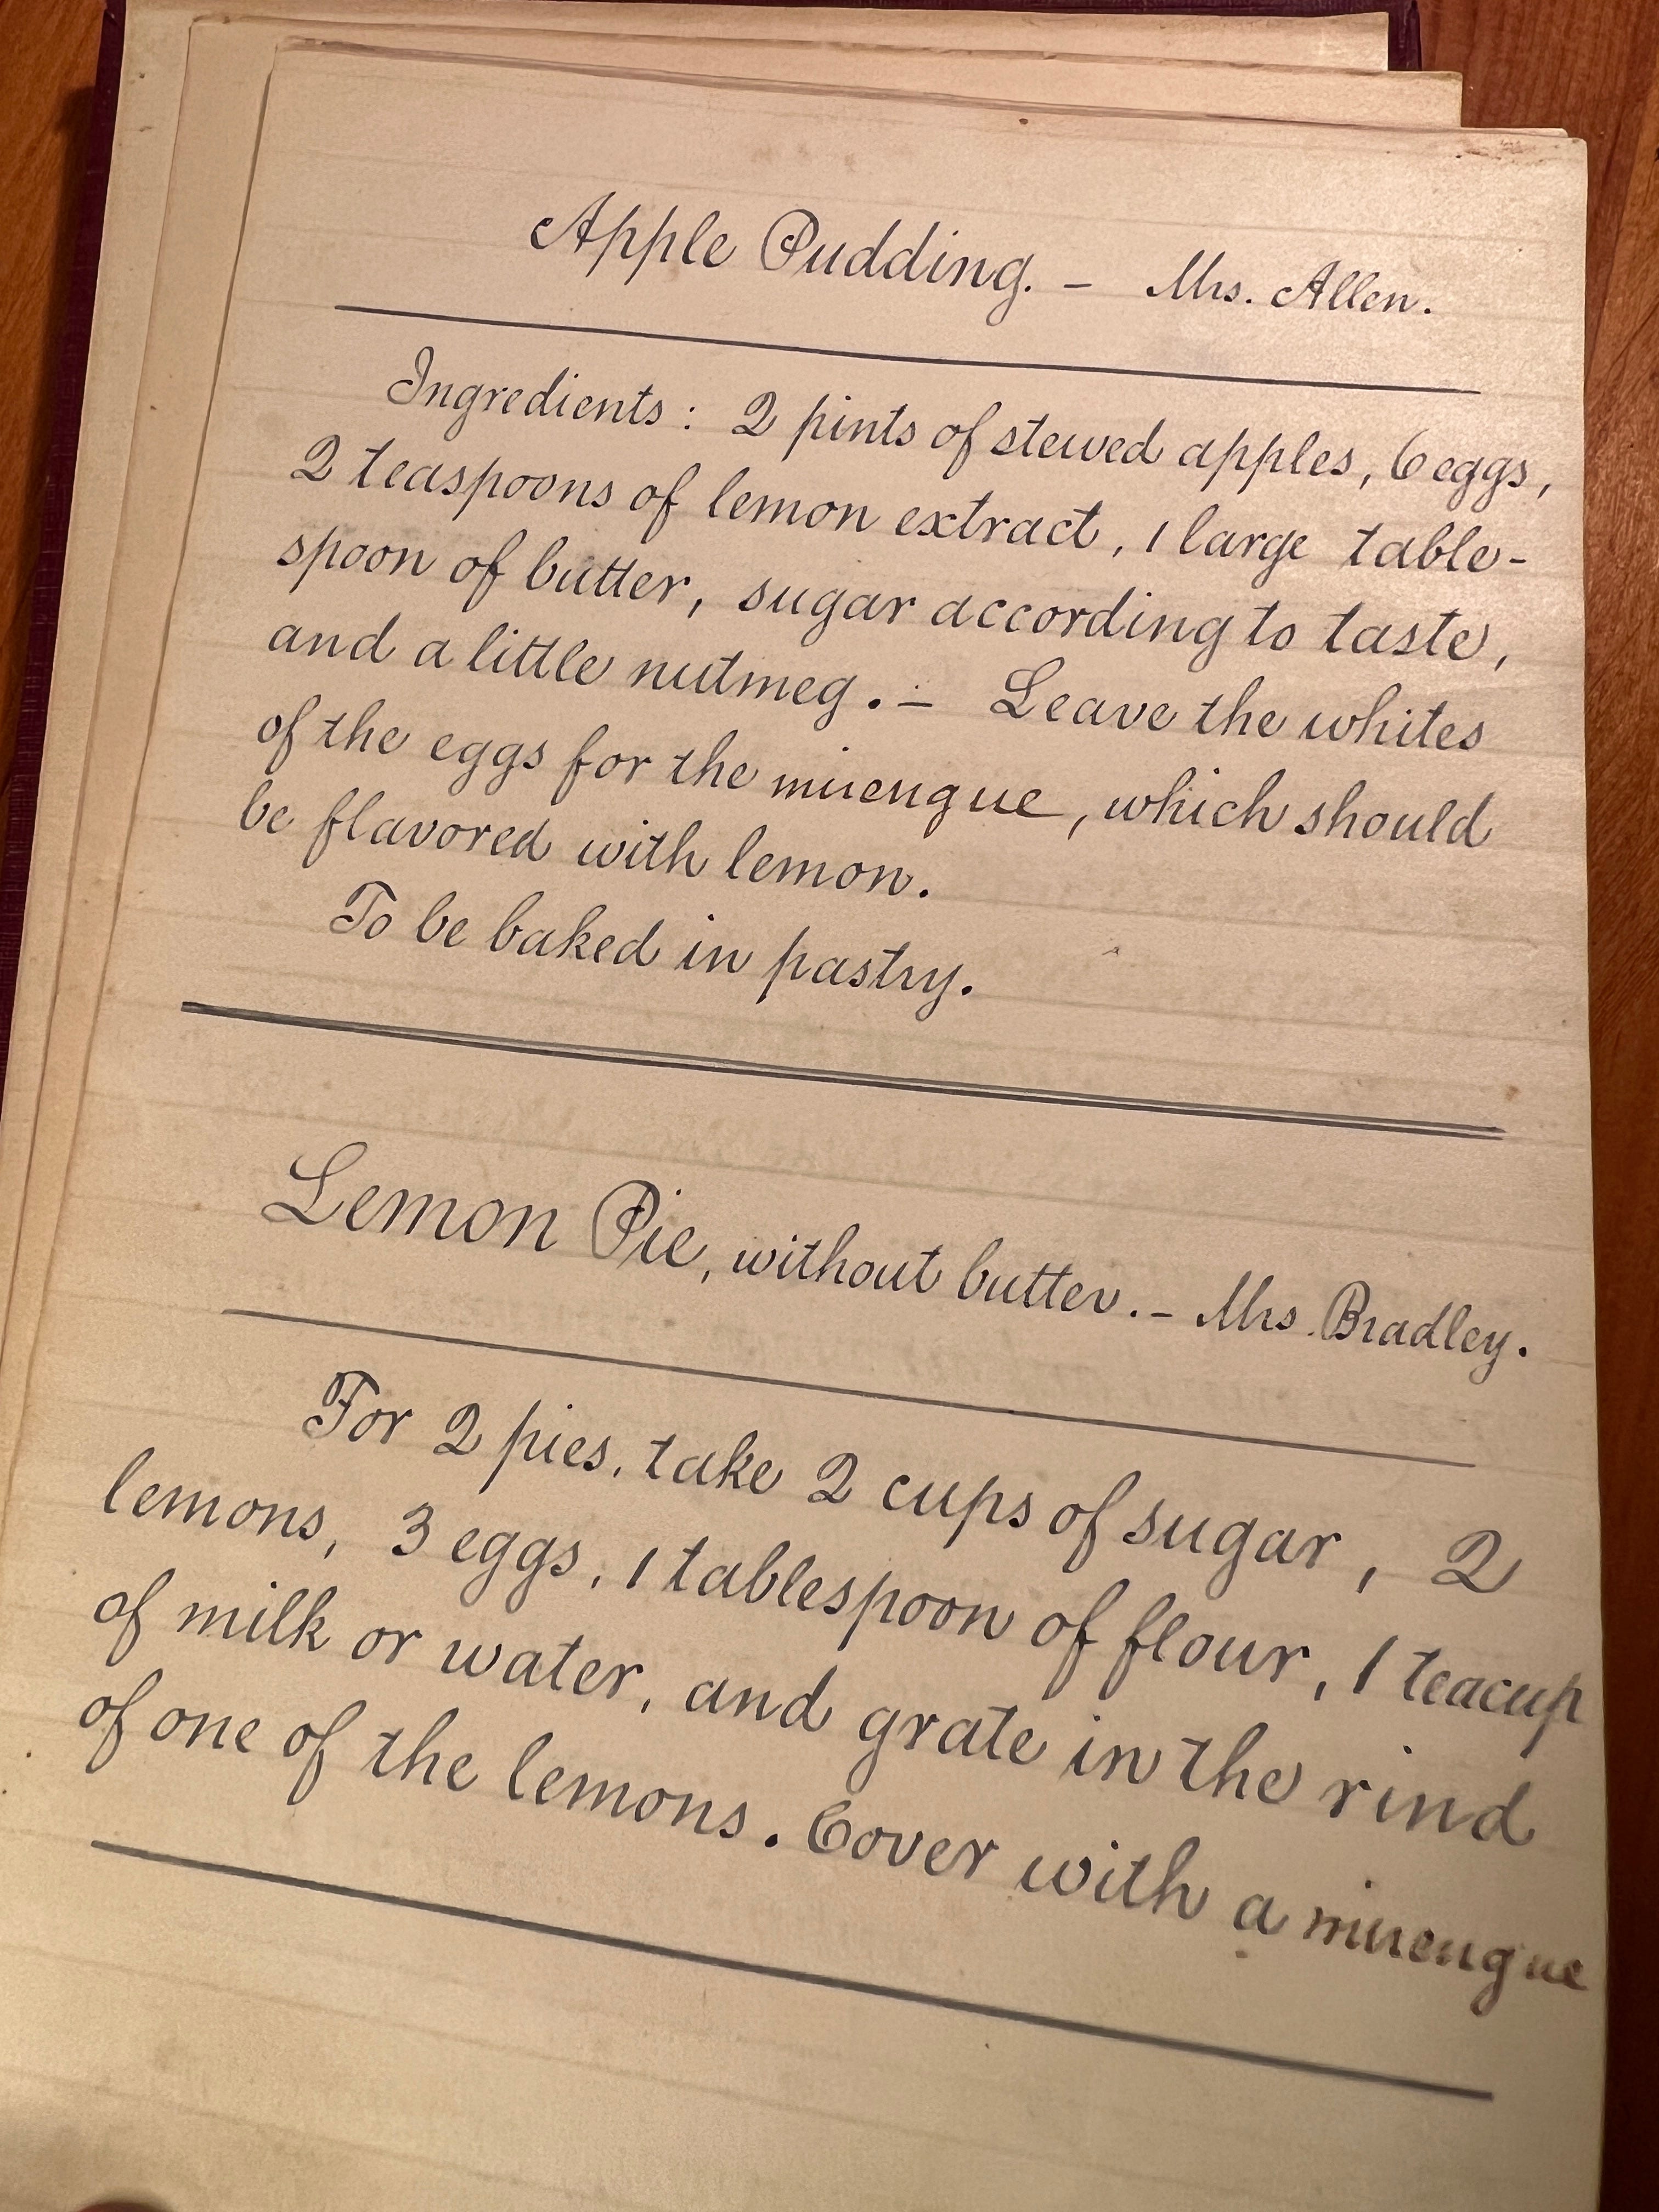 Apple Pudding. – Mrs. Allen.
Ingredients: 2 pints of stewed apples, 6 eggs,
2 teaspoons of lemon extract, 1 large table-
spoon of butter, sugar according to taste,
and a little nutmeg. – Leave the whites
of the eggs for the mirengue, which should
be flavored with lemon.
To be baked in pastry.
Lemon Pie, without butter. – Mrs. Bradley.
For 2 pies, take 2 cups of sugar, 2
lemons, 3 eggs, 1 tablespoon of flour, 1 teacup
of milk or water, and grate in the rind
of one of the lemons. Cover with a mirengue